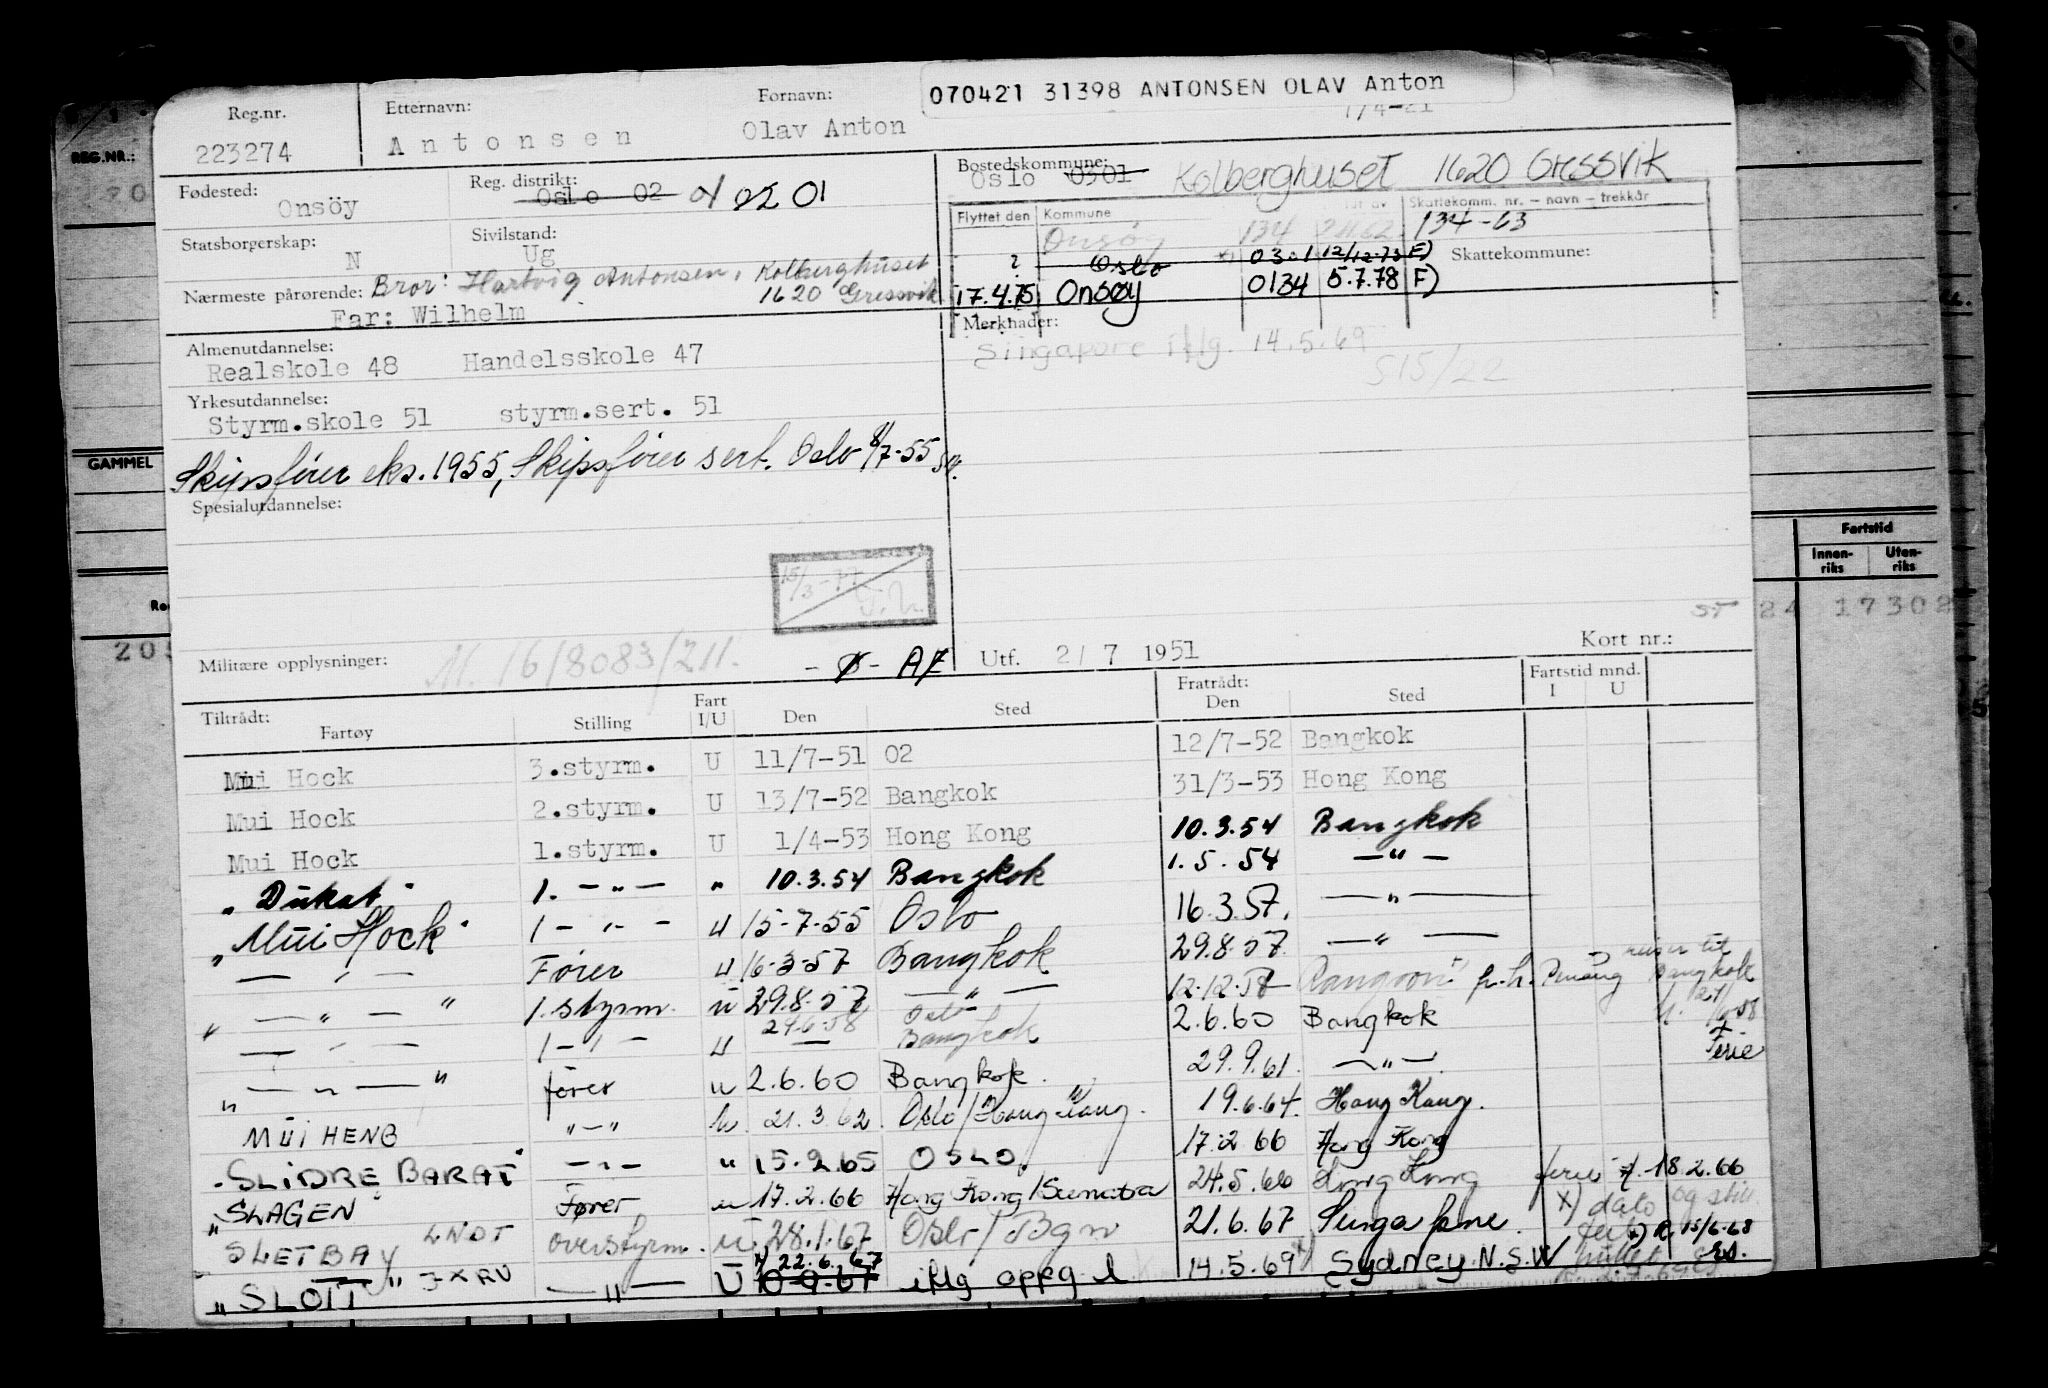 070421 31398 ANTONSEN OLAV Anton
Reg.nr. Etternavn: Fornavn:
223274 Antonsen Olav Anton 7/4-21
Fødested: Reg. distrikt: Bostedskommune:
Onsöy Oslo 02 2201 Oslo 0301 Kolberghuset 1620 Gressvik
Statsborgerskap: Sivilstand:
N Ug
Flyttet den Kommune Skattekomm. nr. – navn – trekkår
Onsöy 134 134-63
? Oslo 0301 12/12-73 F) Skattekommune:
17.4.75 Onsøy 0134 5.7.78 F)
Nærmeste pårørende: Bror: Hartvig Antonsen, Kolberghuset
1620 Gressvik
Far: Wilhelm
Merknader:
Singapore iflg. 14.5.69
515/22
Almenutdannelse:
Realskole 48 Handelsskole 47
Yrkesutdannelse:
Styrm.skole 51 styrm.sert. 51
Skipsfører eks. 1955, Skipsfører sert. Oslo 8/7-55
Spesialutdannelse:
15/3-77
Militære opplysninger: M. 16/8083/211. -ø- A7 Utf. 2/7 1951 Kort nr.:
Tiltrådt: Fratrådt: Fartstid mnd.
Fartøy Stilling Fart I/U Den Sted Den Sted I U
Mui Hock 3.styrm. U 11/7-51 02 12/7-52 Bangkok
Mui Hock 2.styrm. U 13/7-52 Bangkok 31/3-53 Hong Kong
Mui Hock 1.styrm. U 1/4-53 Hong Kong 10.3.54 Bangkok
"Dukat" 1. -"- " 10.3.54 Bangkok 1.5.54 -"-
"Mui Hock" 1 -"- U 15-7-55 Oslo 16.3.57. -"-
-"- Fører U 16-3-57 Bangkok 29.8.57. -"-
" -"- " 1.styrm. U 29.8.57 -"- 12-12-58 Rangoon p.h. Penang reiser til Bangkok
-"- 1 -"- U 24.6.58 Oslo Bangkok 2.6.60 Bangkok Ferie
" -"- " fører U 2.6.60 Bangkok. 29.9.61. -"-.
MUI HENG "-" U. 21.3.62 Oslo/Hong Kong. 19.6.64. Hong Kong.
"SLIDRE BARAT" -"- " 15.2.65 OSLO. 17.2 66 Hong Kong
"SLAGEN" Fører U 17.2.66 Hong Kong/Sumatra 24.5.66 Hong Kong ferie f. 18.2.66
SLETBAY LNDT overstyrm. U 28.1.67 Oslo/Bgn 21.6.67 Singapore. x) dato og stil.
"SLOTT" JXRV -"- U x) 22.6.67 10-9-67 iflg oppg 14.5.69 Sydney N.S.W
REG.NR.:
GAMMEL
205
Fartstid
Innenriks Utenriks
24 17302